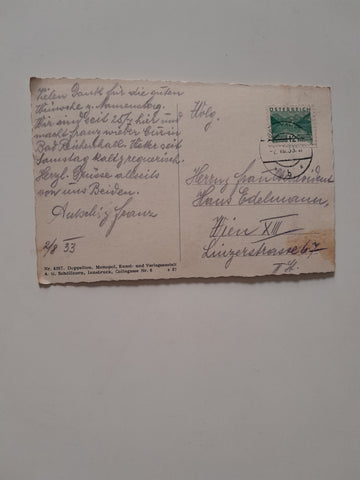 Vielen Dank für die guten
Wünsche z. Namenstag.
Wir sind seit 25/7 hier und
macht Franz wieder Cur in
Bad Reichenhall. Hatte seit
Samstag kalt & regnerisch.
Herzl. Grüsse allseits
von uns Beiden.
Franz
2/8 33
Nr. 4297. Doppelton. Monopol, Kunst- und Verlagsanstalt
A. u. Schöllhorn, Innsbruck, Colingasse Nr. 6
Wohlg.
ÖSTERREICH
Herrn
Hans Edelmann
Wien XIII
Linzerstrasse 67
II. St.